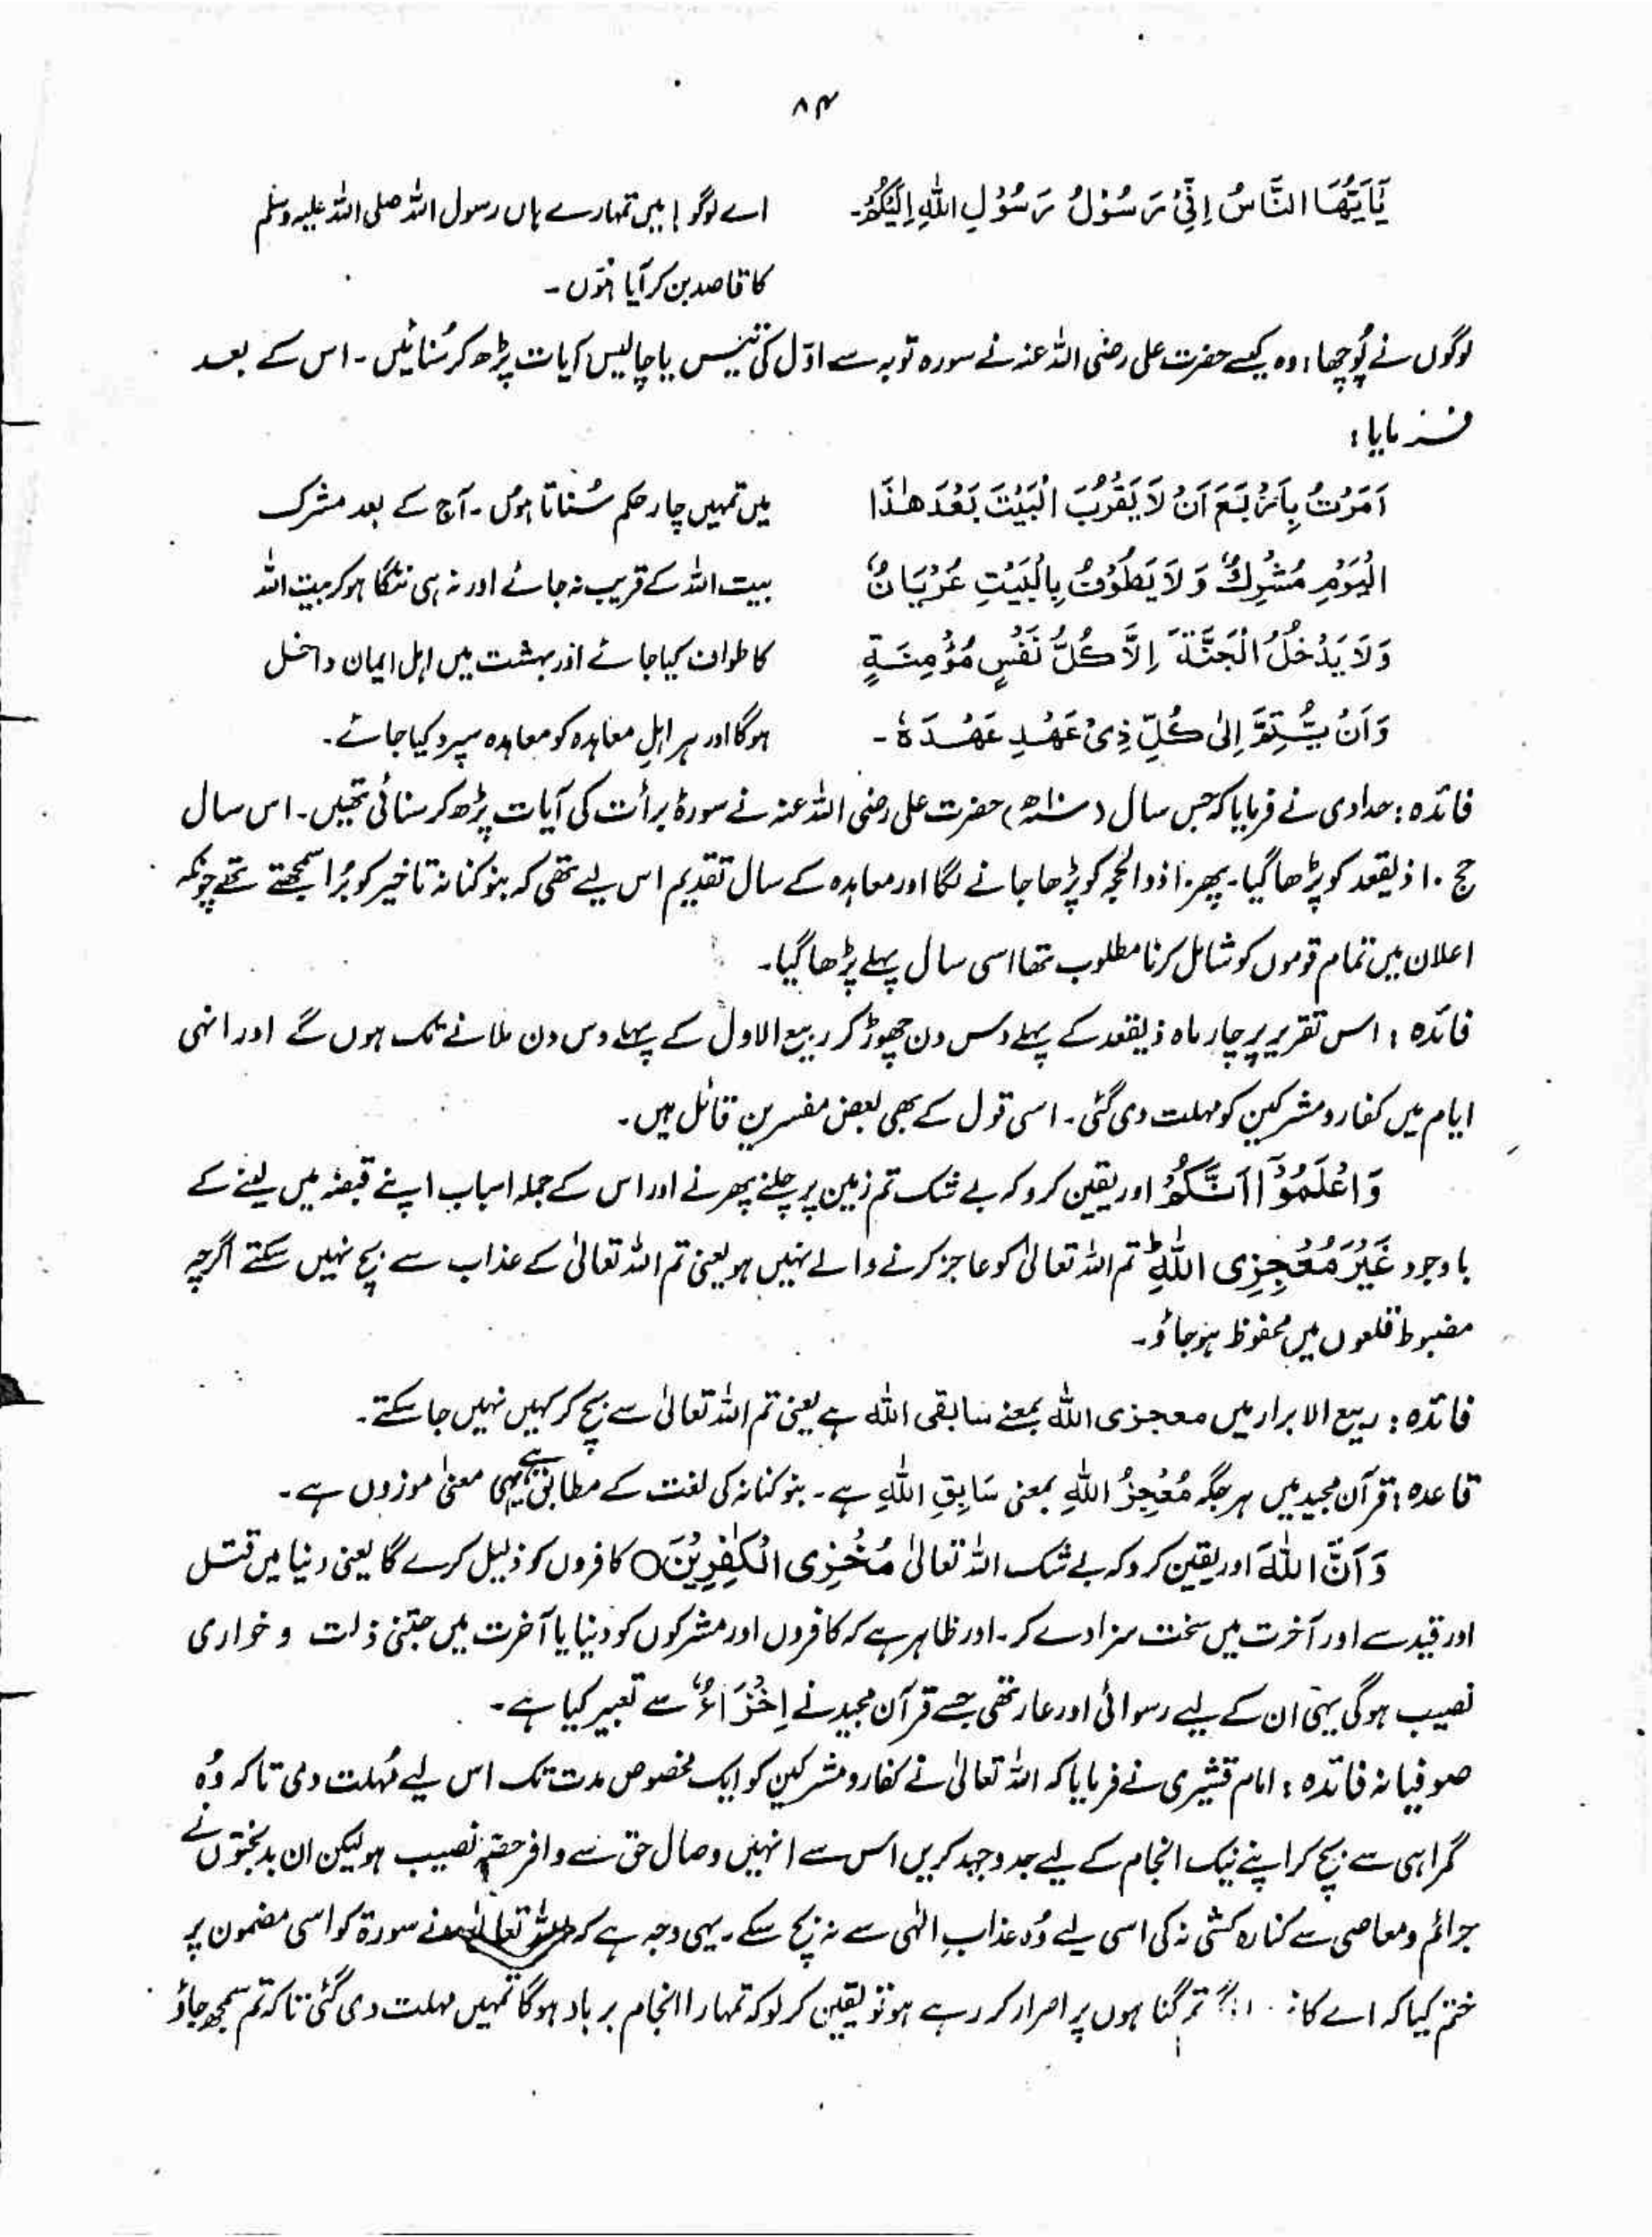 ۸۴
یَٰٓاَیُّهَا النَّاسُ اِنِّیْ رَسُوْلُ رَسُوْلِ اللّٰهِ اِلَیْکُمْ۔ اے لوگو! میں تمہارے ہاں رسول اللہ صلی اللہ علیہ وسلم
کا قاصد بن کر آیا ہُوں۔
لوگوں نے پُوچھا: وہ کیسے حضرت علی رضی اللہ عنہ نے سورہ توبہ سے اوّل کی تیس یا چالیس آیات پڑھ کر سُنائیں۔ اس کے بعد
فرمایا:
اَمَرْتُ بِاَرْبَعَ اَنْ لَا یَقْرُبَ الْبَیْتَ بَعْدَ هٰذَا میں تمہیں چار حکم سُناتا ہوں۔ آج کے بعد مشرک
الْیَوْمِ مُشْرِكٌ وَ لَا یَطُوْفُ بِالْبَیْتِ عُرْیَانٌ بیت اللہ کے قریب نہ جائے اور نہ ہی ننگا ہو کر بیت اللہ
وَلَا یَدْخُلُ الْجَنَّةَ اِلَّا کُلُّ نَفْسٍ مُؤْمِنَةٍ کا طواف کیا جائے اور بہشت میں اہل ایمان داخل
وَاَنْ یُّتِمَّ اِلٰی کُلِّ ذِیْ عَهْدٍ عَهْدَهٗ۔ ہوگا اور ہر اہلِ معاہدہ کو معاہدہ سپرد کیا جائے۔
فائدہ: حدادی نے فرمایا کہ جس سال (سنہ ۹ھ) حضرت علی رضی اللہ عنہ نے سورۂ برأت کی آیات پڑھ کر سنائی تھیں۔ اس سال
حج ۱۰ ذیقعد کو پڑھا گیا۔ پھر ۱۰ ذوالحجہ کو پڑھا جانے لگا اور معاہدہ کے سال تقدیم اس لیے تھی کہ بنو کنانہ تاخیر کو بُرا سمجھتے تھے چونکہ
اعلان میں تمام قوموں کو شامل کرنا مطلوب تھا اسی سال پہلے پڑھا گیا۔
فائدہ: اس تقریر پر چار ماہ ذیقعد کے پہلے دس دن چھوڑ کر ربیع الاول کے پہلے دس دن ملانے تک ہوں گے اور انہی
ایام میں کفار و مشرکین کو مہلت دی گئی۔ اسی قول کے بھی بعض مفسرین قائل ہیں۔
وَاعْلَمُوْٓا اَنَّکُمْ اور یقین کرو کہ بے شک تم زمین پر چلنے پھرنے اور اس کے جملہ اسباب اپنے قبضہ میں لینے کے
باوجود غَیْرُ مُعْجِزِی اللّٰهِ ۙ تم اللہ تعالیٰ کو عاجز کرنے والے نہیں ہو یعنی تم اللہ تعالیٰ کے عذاب سے بچ نہیں سکتے اگرچہ
مضبوط قلعوں میں محفوظ ہو جاؤ۔
فائدہ: ربیع الابرار میں معجزی اللہ بمعنے سابقی اللہ ہے یعنی تم اللہ تعالیٰ سے بچ کر کہیں نہیں جا سکتے۔
قاعدہ: قرآن مجید میں ہر جگہ مُعْجِزُ اللّٰهِ بمعنی سَابِقِ اللّٰهِ ہے۔ بنو کنانہ کی لغت کے مطابق ہے یہی معنیٰ موزوں ہے۔
وَ اَنَّ اللّٰهَ اور یقین کرو کہ بے شک اللہ تعالیٰ مُخْزِی الْکٰفِرِیْنَ○ کافروں کو ذلیل کرے گا یعنی دنیا میں قتل
اور قید سے اور آخرت میں سخت سزا دے کر۔ اور ظاہر ہے کہ کافروں اور مشرکوں کو دنیا یا آخرت میں جتنی ذلت و خواری
نصیب ہوگی یہی ان کے لیے رسوائی اور عار تھی جسے قرآن مجید نے اِخْزَاءٌ سے تعبیر کیا ہے۔
صوفیانہ فائدہ: امام قشیری نے فرمایا کہ اللہ تعالیٰ نے کفار و مشرکین کو ایک مخصوص مدت تک اس لیے مُہلت دی تاکہ وُہ
گمراہی سے بچ کر اپنے نیک انجام کے لیے جد وجہد کریں اس سے انہیں وصال حق سے وافر حصّہ نصیب ہو لیکن ان بدبختوں نے
جرائم و معاصی سے کنارہ کشی نہ کی اسی لیے وُہ عذابِ الٰہی سے نہ بچ سکے۔ یہی وجہ ہے کہ اللہ تعالیٰ نے سورۃ کو اسی مضمون پر
ختم کیا کہ اے تم گناہوں پر اصرار کر رہے ہو تو یقین کر لو کہ تمہارا انجام برباد ہوگا تمہیں مہلت دی گئی تاکہ تم سمجھ جاؤ